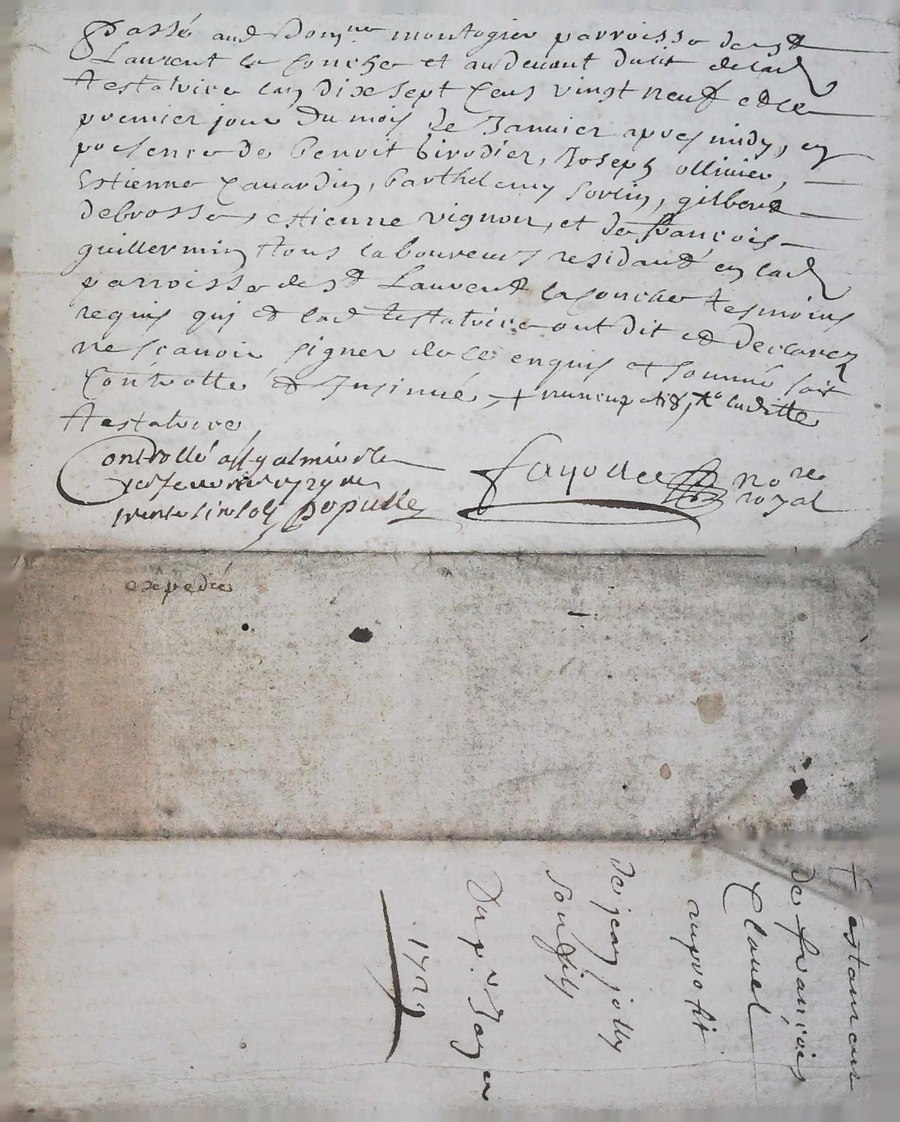 Passé aud Domne montagier parroisse de st
Laurent la Conche et audevant dulit delad
testatrice lan dixe sept Cens vingt neuf et le
premier jour du mois de Janvier apres midy, en
presence de benoit Girodier, Joseph ollivier,
Estienne Chavardin, barthelemy sorlin, gilbert
debrosse, estienne vignon, et de françois
guillermin tous laboureurs residant en lad
parroisse de st Laurent la Conche tesmoins
requis qui et lad testatrice ont dit et declarez
ne scavoir signer de ce enquis et sommé soit
Controllé et Insinué,
laditte
testatrice
Controllé
Populle
Fayolle nore
royal
expedié
Testament
de françois
Clavel
au profit
de jean jolly
son fils
Du pr Janer
1729